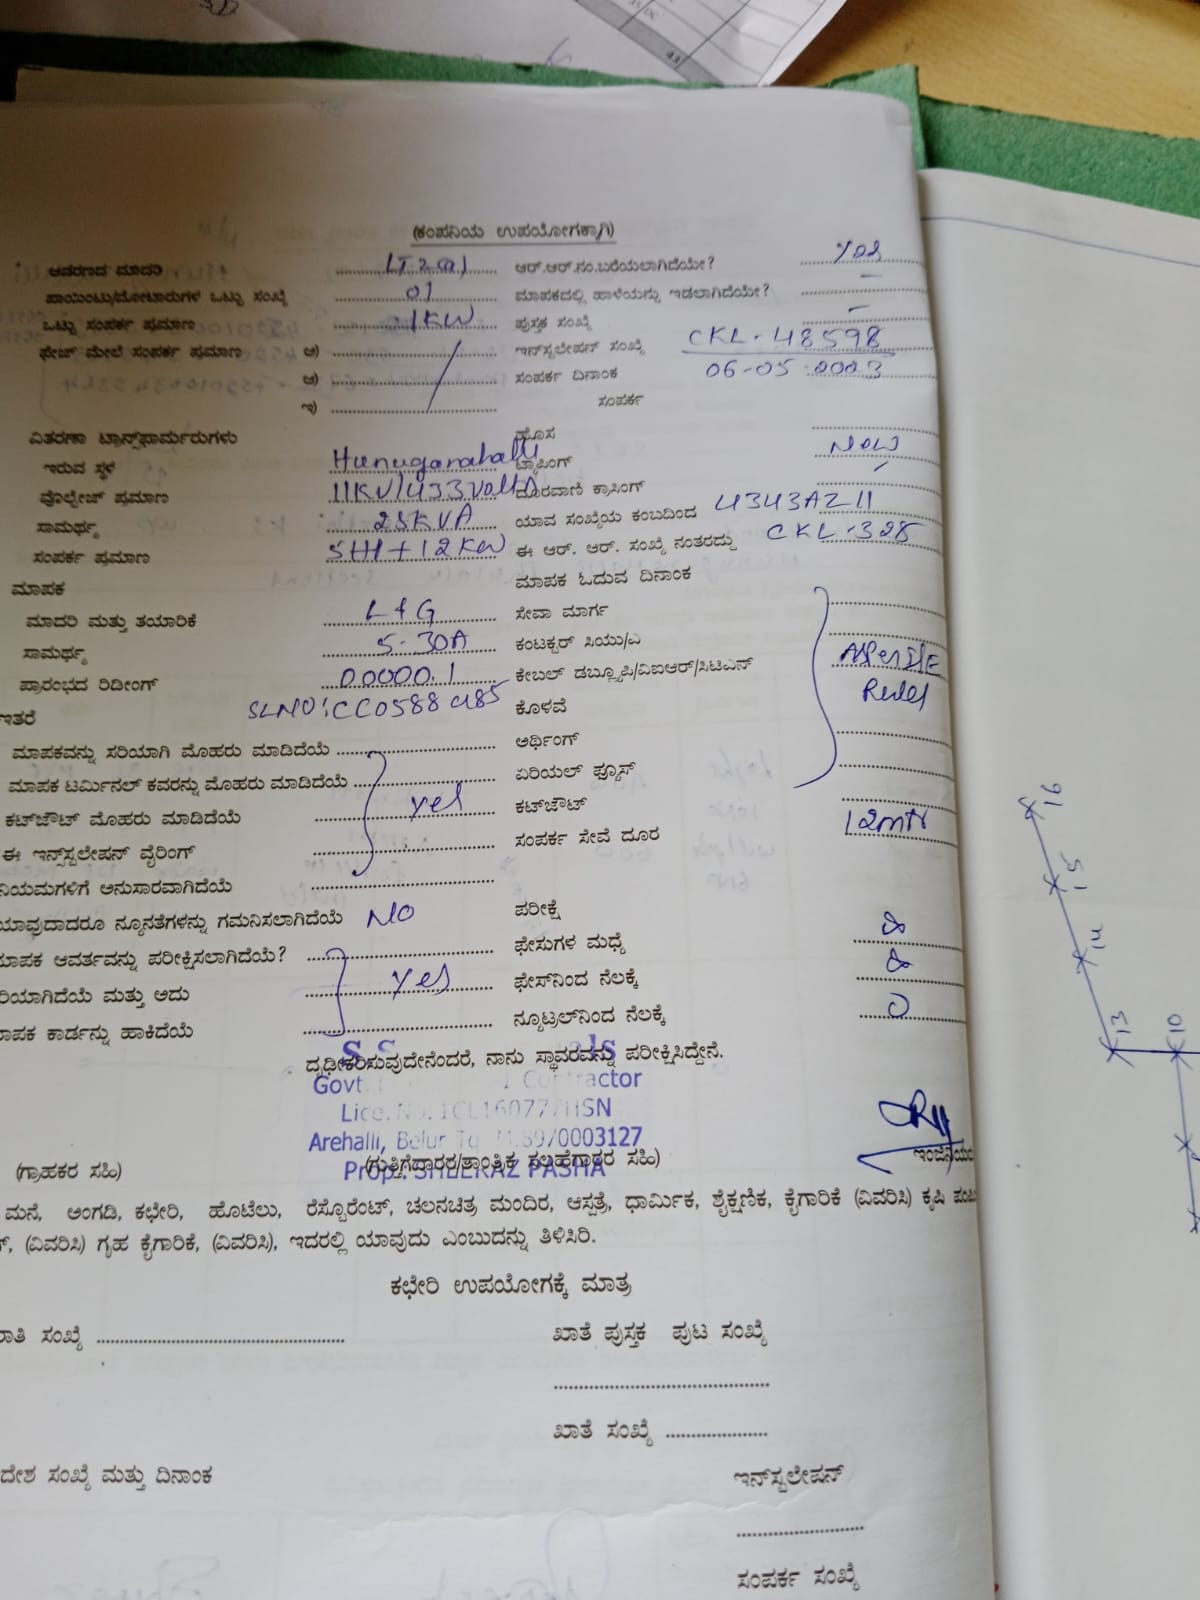 (ಕಂಪನಿಯ ಉಪಯೋಗಕ್ಕಾಗಿ)
ಆವರಣದ ಮಾದರಿ LT2(a) ಆರ್.ಆರ್.ನಂ.ಬರೆಯಲಾಗಿದೆಯೇ? Yes
ಪಾಯಿಂಟು/ಮೋಟಾರುಗಳ ಒಟ್ಟು ಸಂಖ್ಯೆ 01 ಮಾಪಕದಲ್ಲಿ ಹಾಳೆಯನ್ನು ಇಡಲಾಗಿದೆಯೇ? -
ಒಟ್ಟು ಸಂಪರ್ಕ ಪ್ರಮಾಣ 1KW ಪುಸ್ತಕ ಸಂಖ್ಯೆ -
ಫೇಜ್ ಮೇಲೆ ಸಂಪರ್ಕ ಪ್ರಮಾಣ ಅ) ಇನ್‌ಸ್ಟಲೇಷನ್ ಸಂಖ್ಯೆ CKL-48598
ಆ) ಸಂಪರ್ಕ ದಿನಾಂಕ 06-05-2023
ಇ) ಸಂಪರ್ಕ
ವಿತರಣಾ ಟ್ರಾನ್ಸ್‌ಫಾರ್ಮರುಗಳು ಹೊಸ New
ಇರುವ ಸ್ಥಳ Hunuganahalli ಟ್ಯಾಪಿಂಗ್
ವೊಲ್ಟೇಜ್ ಪ್ರಮಾಣ 11KV/433Volts ದೂರವಾಣಿ ಕ್ರಾಸಿಂಗ್
ಸಾಮರ್ಥ್ಯ 25KVA ಯಾವ ಸಂಖ್ಯೆಯ ಕಂಬದಿಂದ 4343AZ11
ಸಂಪರ್ಕ ಪ್ರಮಾಣ 5H1+12KW ಈ ಆರ್. ಆರ್. ಸಂಖ್ಯೆ ನಂತರದ್ದು CKL-328
ಮಾಪಕ ಮಾಪಕ ಓದುವ ದಿನಾಂಕ
ಮಾದರಿ ಮತ್ತು ತಯಾರಿಕೆ L&G ಸೇವಾ ಮಾರ್ಗ
ಸಾಮರ್ಥ್ಯ 5-30A ಕಂಟಕ್ಟರ್ ಸಿಯು/ಎ
ಪ್ರಾರಂಭದ ರಿಡೀಂಗ್ 00000.1 ಕೇಬಲ್ ಡಬ್ಲ್ಯೂಪಿ/ವಿಐಆರ್/ಸಿಟಿಎಸ್ As Per IE Rules
ಇತರೆ SLNO: ಕೊಳವೆ
ಮಾಪಕವನ್ನು ಸರಿಯಾಗಿ ಮೊಹರು ಮಾಡಿದೆಯೆ ಅರ್ಥಿಂಗ್
ಮಾಪಕ ಟರ್ಮಿನಲ್ ಕವರನ್ನು ಮೊಹರು ಮಾಡಿದೆಯೆ ಏರಿಯಲ್ ಫ್ಯೂಸ್
ಕಟ್‌ಔಟ್ ಮೊಹರು ಮಾಡಿದೆಯೆ yes ಕಟ್‌ಔಟ್
ಈ ಇನ್ಸ್‌ಸ್ಟಲೇಷನ್ ವೈರಿಂಗ್ ಸಂಪರ್ಕ ಸೇವೆ ದೂರ 12mtr
ನಿಯಮಗಳಿಗೆ ಅನುಸಾರವಾಗಿದೆಯೆ
ಯಾವುದಾದರೂ ನ್ಯೂನತೆಗಳನ್ನು ಗಮನಿಸಲಾಗಿದೆಯೆ NO ಪರೀಕ್ಷೆ
ಮಾಪಕ ಆವರ್ತವನ್ನು ಪರೀಕ್ಷಿಸಲಾಗಿದೆಯೆ? ಫೇಸುಗಳ ಮಧ್ಯೆ ∞
ರಿಯಾಗಿದೆಯೆ ಮತ್ತು ಅದು yes ಫೇಸ್‌ನಿಂದ ನೆಲಕ್ಕೆ ∞
ಮಾಪಕ ಕಾರ್ಡನ್ನು ಹಾಕಿದೆಯೆ ನ್ಯೂಟ್ರಲ್‌ನಿಂದ ನೆಲಕ್ಕೆ 0
ದೃಢೀಕರಿಸುವುದೇನೆಂದರೆ, ನಾನು ಸ್ಥಾವರವನ್ನು ಪರೀಕ್ಷಿಸಿದ್ದೇನೆ.
Govt. Contractor
Lice. No. 1CL16077/HSN
Arehalli, Belur Tq 8970003127
Prop.: SHEERAZ PASHA
(ಗ್ರಾಹಕರ ಸಹಿ) (ಗುತ್ತಿಗೆದಾರರ/ತಾಂತ್ರಿಕ ಸಲಹೆಗಾರರ ಸಹಿ)
ಮನೆ, ಅಂಗಡಿ, ಕಛೇರಿ, ಹೊಟೆಲು, ರೆಸ್ಟೊರೆಂಟ್, ಚಲನಚಿತ್ರ ಮಂದಿರ, ಆಸ್ಪತ್ರೆ, ಧಾರ್ಮಿಕ, ಶೈಕ್ಷಣಿಕ, ಕೈಗಾರಿಕೆ (ವಿವರಿಸಿ) ಕೃಷಿ
(ವಿವರಿಸಿ) ಗೃಹ ಕೈಗಾರಿಕೆ, (ವಿವರಿಸಿ), ಇದರಲ್ಲಿ ಯಾವುದು ಎಂಬುದನ್ನು ತಿಳಿಸಿರಿ.
ಕಛೇರಿ ಉಪಯೋಗಕ್ಕೆ ಮಾತ್ರ
ಸಂಖ್ಯೆ ಖಾತೆ ಪುಸ್ತಕ ಪುಟ ಸಂಖ್ಯೆ
ಖಾತೆ ಸಂಖ್ಯೆ
ದೇಶ ಸಂಖ್ಯೆ ಮತ್ತು ದಿನಾಂಕ ಇನ್‌ಸ್ಟಲೇಷನ್
ಸಂಪರ್ಕ ಸಂಖ್ಯೆ
16
15
14
13
10